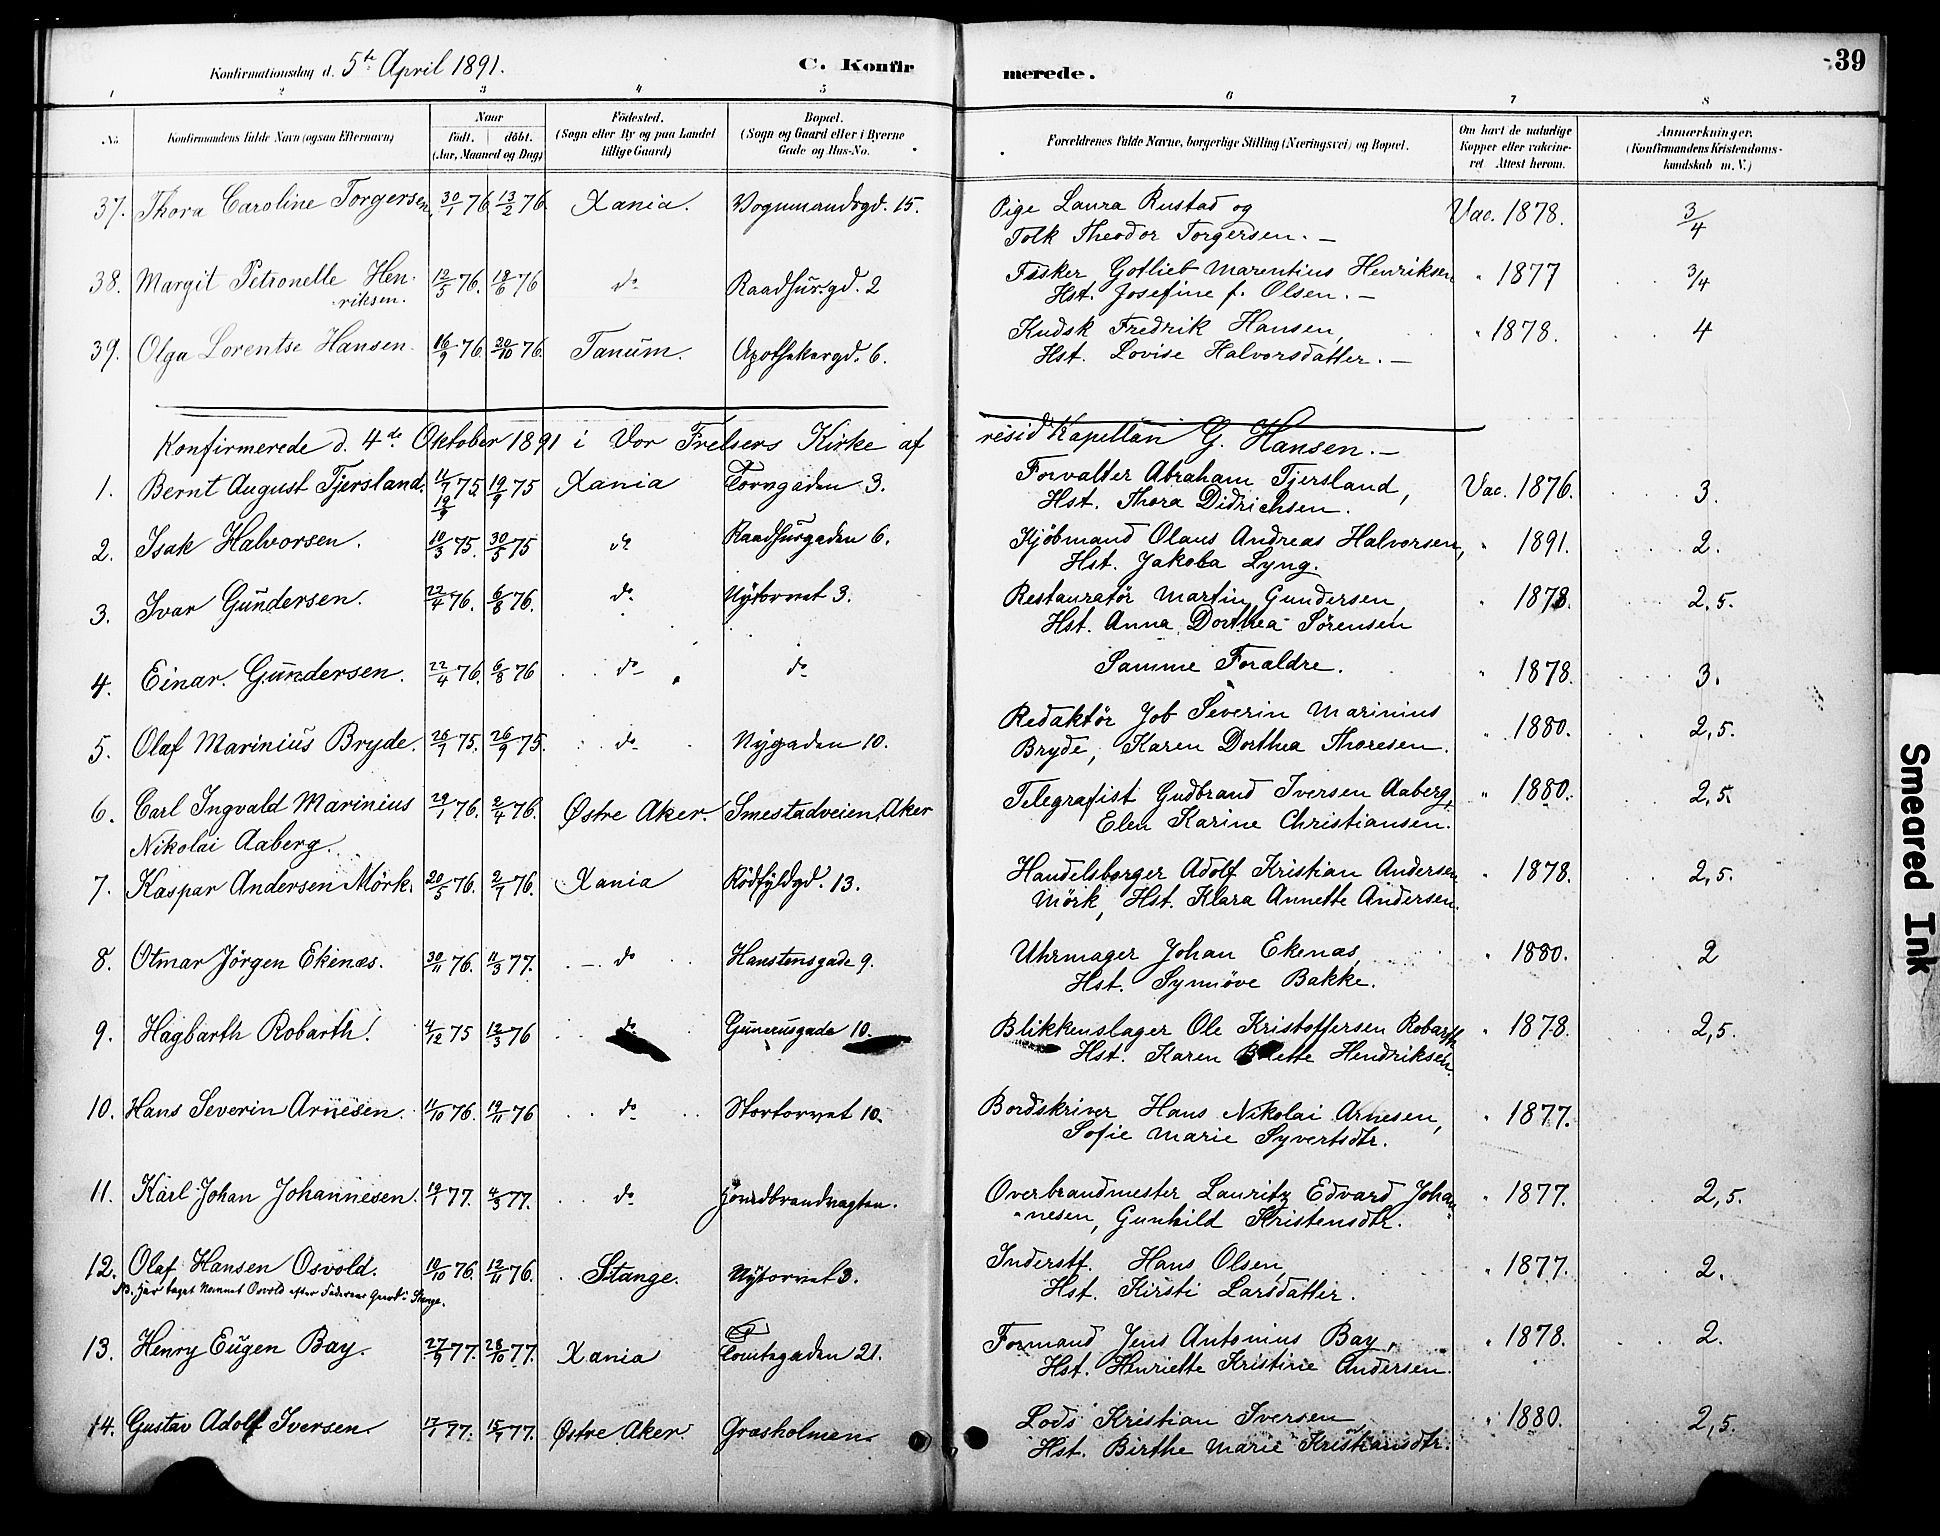 Konfirmationsdag d. 5te April 1891. C. Konfirmerede. 39
1 2 3 4 5 6 7 8
No. Konfirmandens fulde Navn (ogsaa Efternavn) Naar født. døbt. (Aar, Maaned og Dag) Fødested. (Sogn eller By og paa Landet tillige Gaard) Bopæl. (Sogn og Gaard eller i Byerne Gade og Hus-No. Forældrenes fulde Navne, borgerlige Stilling (Næringsvei) og Bopæl. Om havt de naturlige Kopper eller vakcineret. Attest herom. Anmærkninger. (Konfirmandens Kristendomskundskab m. V.)
37. Thora Caroline Torgersen. 30/1 76 13/2 76 Xania. Vognmandsgd. 15. Pige Laura Rustad og Vac. 1878. 3/4
Tolk Theodor Torgersen. —
38. Margit Petronelle Hen- 12/5 76. 18/6 76 do Raadhusgd. 2 Fisker Gotlieb Marentius Henriksen " 1877 3/4
riksen. Hst. Josefine f. Olsen. —
39. Olga Lorentse Hansen 16/9 76 20/10 76. Tanum. Apothekergd. 6. Kudsk Fredrik Hansen, " 1878. 4
Hst. Lovise Halvorsdatter. —
Konfirmerede d. 4de Oktober 1891 i Vor Frelsers Kirke af resid Kapellan G. Hansen. —
1. Bernt August Tjersland. 11/7 75. 19/9 75 Xania Torvgaden 3. Forvalter Abraham Tjersland, Vac. 1876. 3.
Hst. Thora Didrichsen.
2. Isak Halvorsen. 10/3 75. 30/5 75 do Raadhusgaden 6. Kjöbmand Olaus Andreas Halvorsen, " 1891. 2.
Hst. Jakoba Lyng.
3. Ivar Gundersen. 22/4 76. 6/8 76. do Nytorvet 3. Restauratör Martin Gundersen, " 1878. 2,5.
Hst. Anna Dorthea Sörensen
4. Einar Gundersen. 22/4 76. 6/8 76 do do Samme Forældre. " 1878. 3.
5. Olaf Marinius Bryde. 26/7 75. 26/9 75. do Nygaden 10. Redaktör Job Severin Marinius " 1880. 2,5.
Bryde, Karen Dorthea Thoresen.
6. Carl Ingvald Marinius 29/1 76. 2/4 76. Østre Aker. Smestadveien, Aker Telegrafist Gudbrand Iversen Aaberg, " 1880. 2,5.
Nikolai Aaberg. Elen Karine Christiansen.
7. Kaspar Andersen Mörk. 20/5 76. 2/7 76. Xania Rödfyldgd. 13. Handelsborger Adolf Kristian Andersen " 1878. 2,5.
Mörk, Hst. Klara Annette Andersen.
8. Otmar Jörgen Ekenæs. 30/11 76. 11/3 77. do Hanstensgade 9. Uhrmager Johan Ekenæs, " 1880. 2
Hst. Synnöve Bakke.
9. Hagbarth Robarth. 4/12 75 12/3 76 do Gunerusgade 10. Blikkenslager Ole Kristoffersen Robarth " 1878. 2,5.
Hst. Karen Hendriksen.
10. Hans Severin Arnesen. 11/10 76. 19/11 76 do Stortorvet 10. Bordskriver Hans Nikolai Arnesen, " 1877.
Sofie Marie Syvertsdtr.
11. Karl Johan Johannesen. 19/1 77. 4/3 77. do Hovedbrandvagten. Overbrandmester Lauritz Edvard Johan- " 1877. 2,5.
nesen, Gunhild Kristensdtr.
12. Olaf Hansen Osvold. 10/10 76. 12/11 76. Stange. Nytorvet 3. Inderstf. Hans Olsen, " 1877. 2.
NB. Har taget Navnet Osvold efter Faderens Gaard i Stange. Hst. Kirsti Larsdatter.
13. Henry Eugen Bay. 27/9 77. 28/10 77. Xania Tomtegaden 21. Formand Jens Antonius Bay, " 1878. 2.
Hst. Henriette Kristine Andersen.
14. Gustav Adolf Iversen. 17/5 77. 15/7 77. Østre Aker Græsholmen. Lods Kristian Iversen, " 1880. 2,5.
Hst. Birthe Marie Kristiansdtr.
Smeared Ink